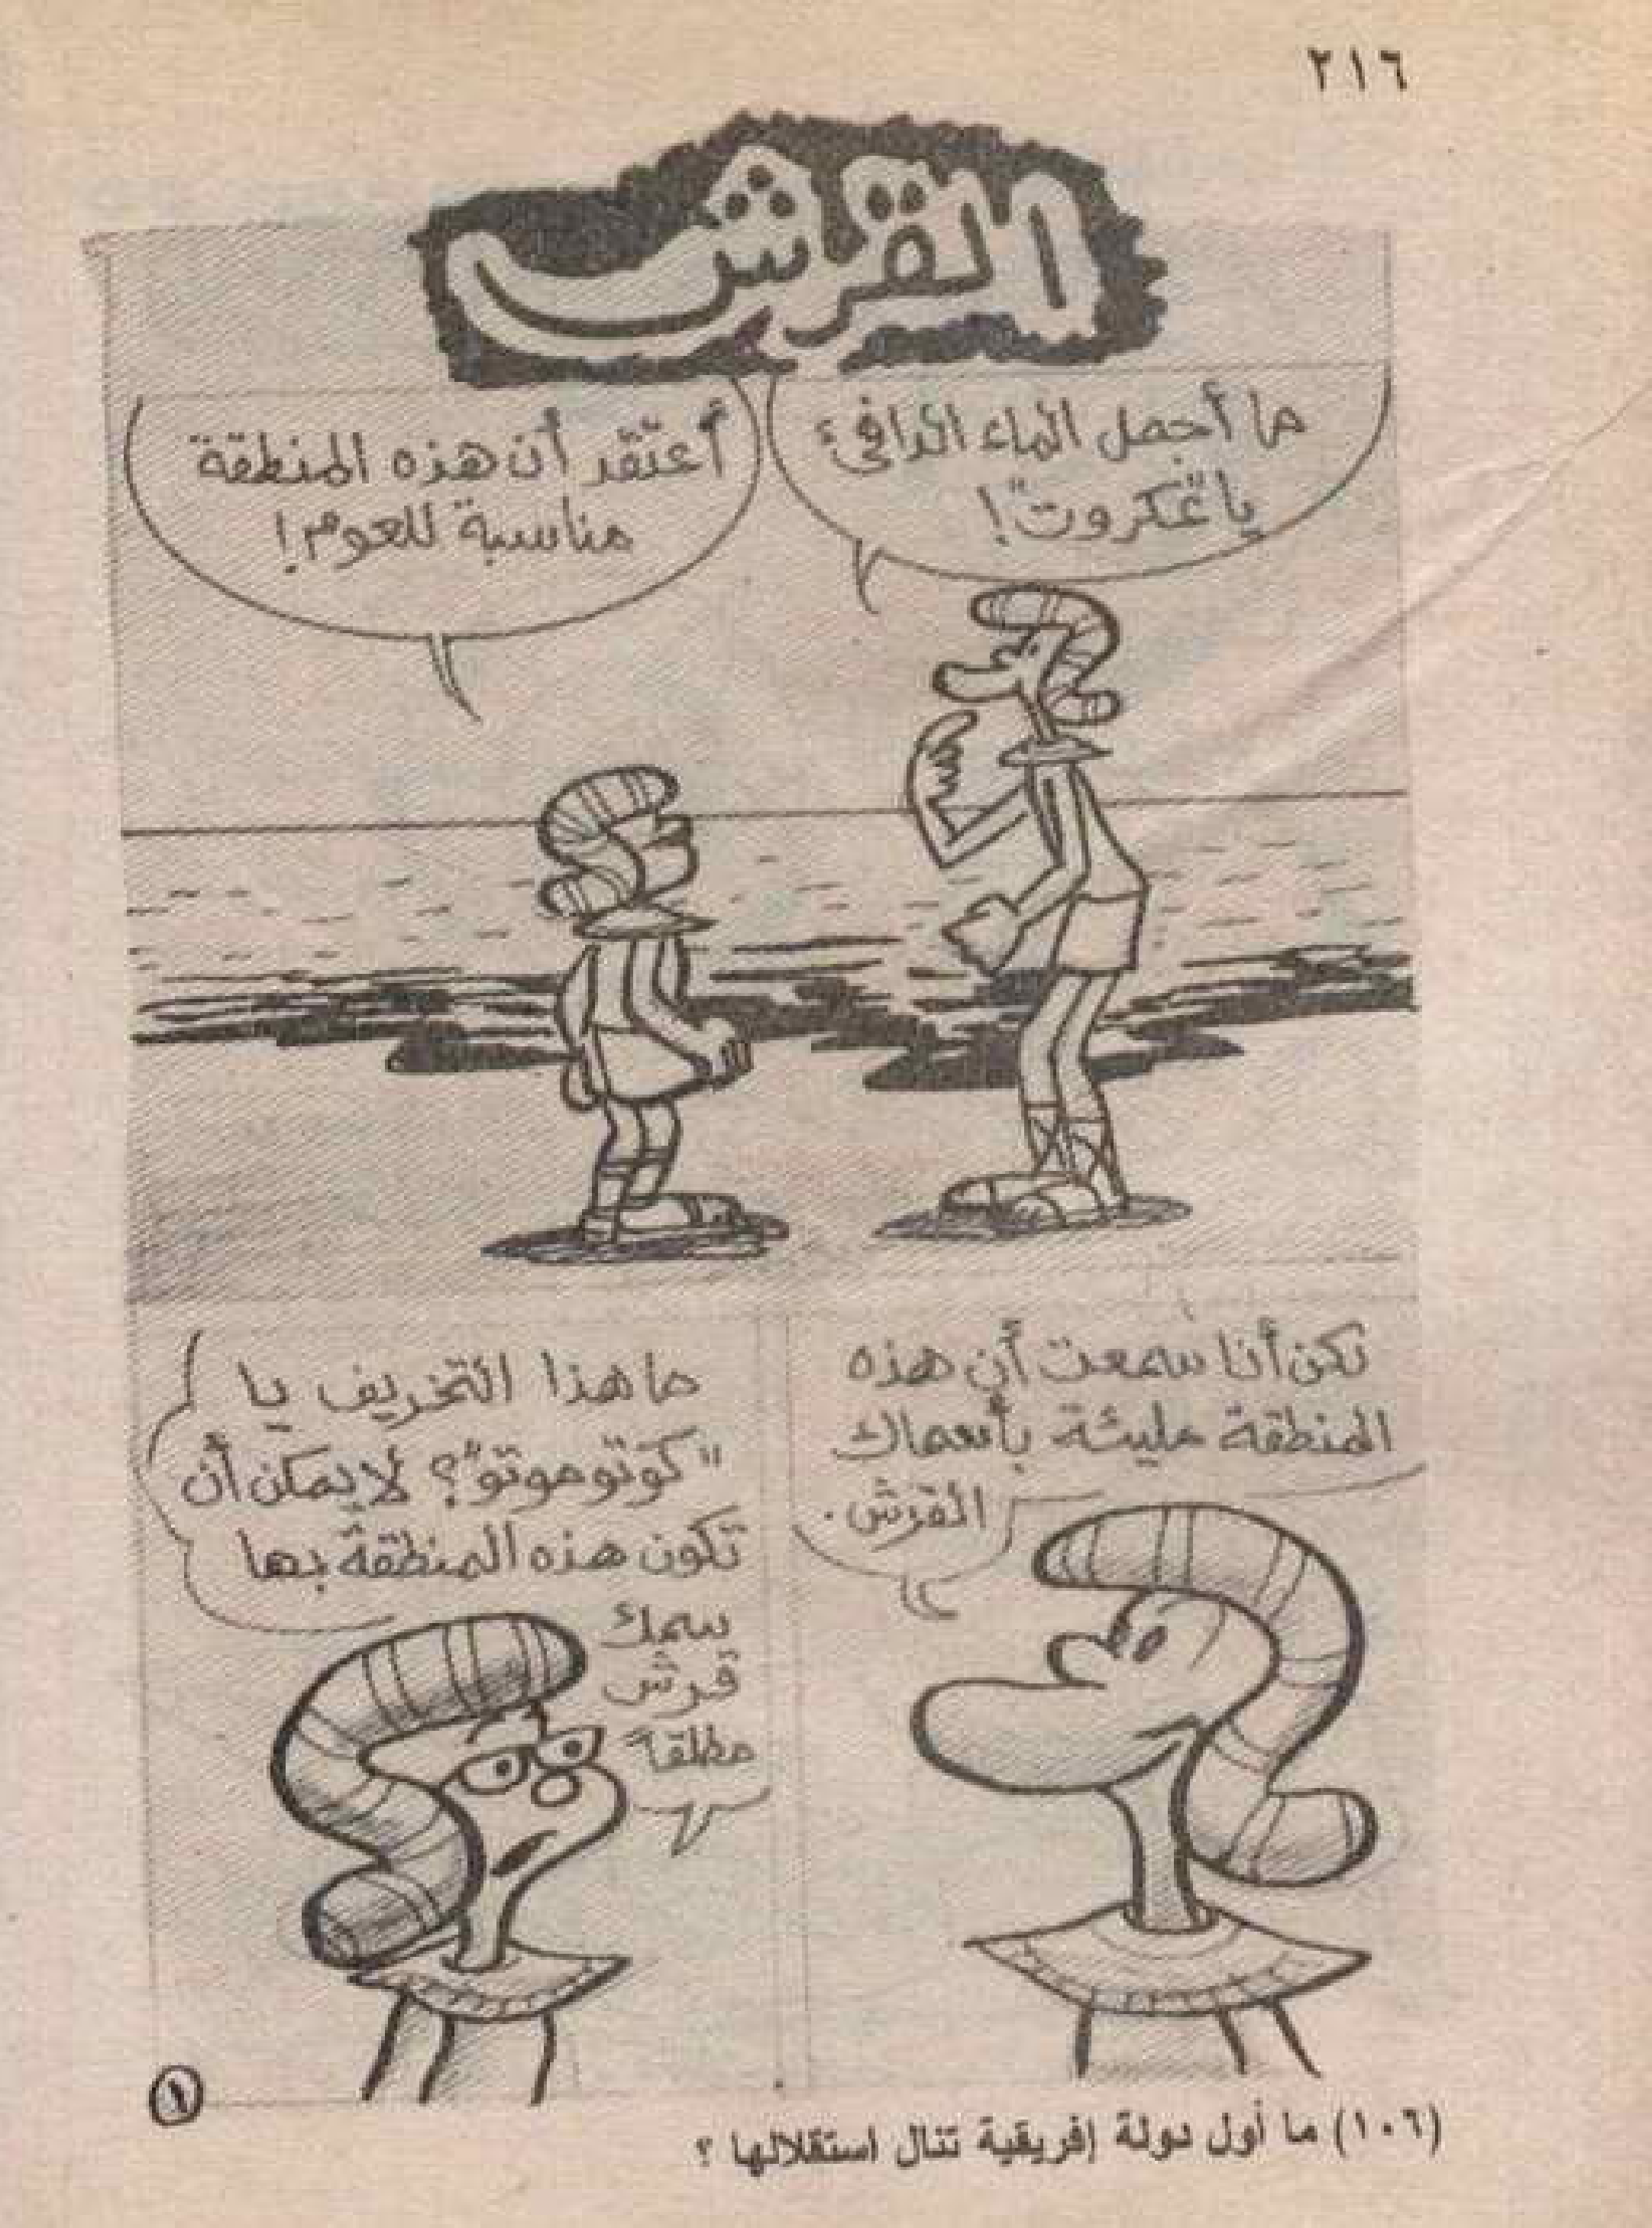 ٢١٦
القرش
ما أجمل الماء الدافئ
يا "عكروت"!
أعتقد أن هذه المنطقة
مناسبة للعوم!
لكن أنا سمعت أن هذه
المنطقة مليئة بأسماك
القرش.
ما هذا التخريف يا
"كوتوموتو"؟ لا يمكن أن
تكون هذه المنطقة بها
سمك
قرش
مطلقاً
١
(١٠٦) ما أول دولة إفريقية تنال استقلالها ؟